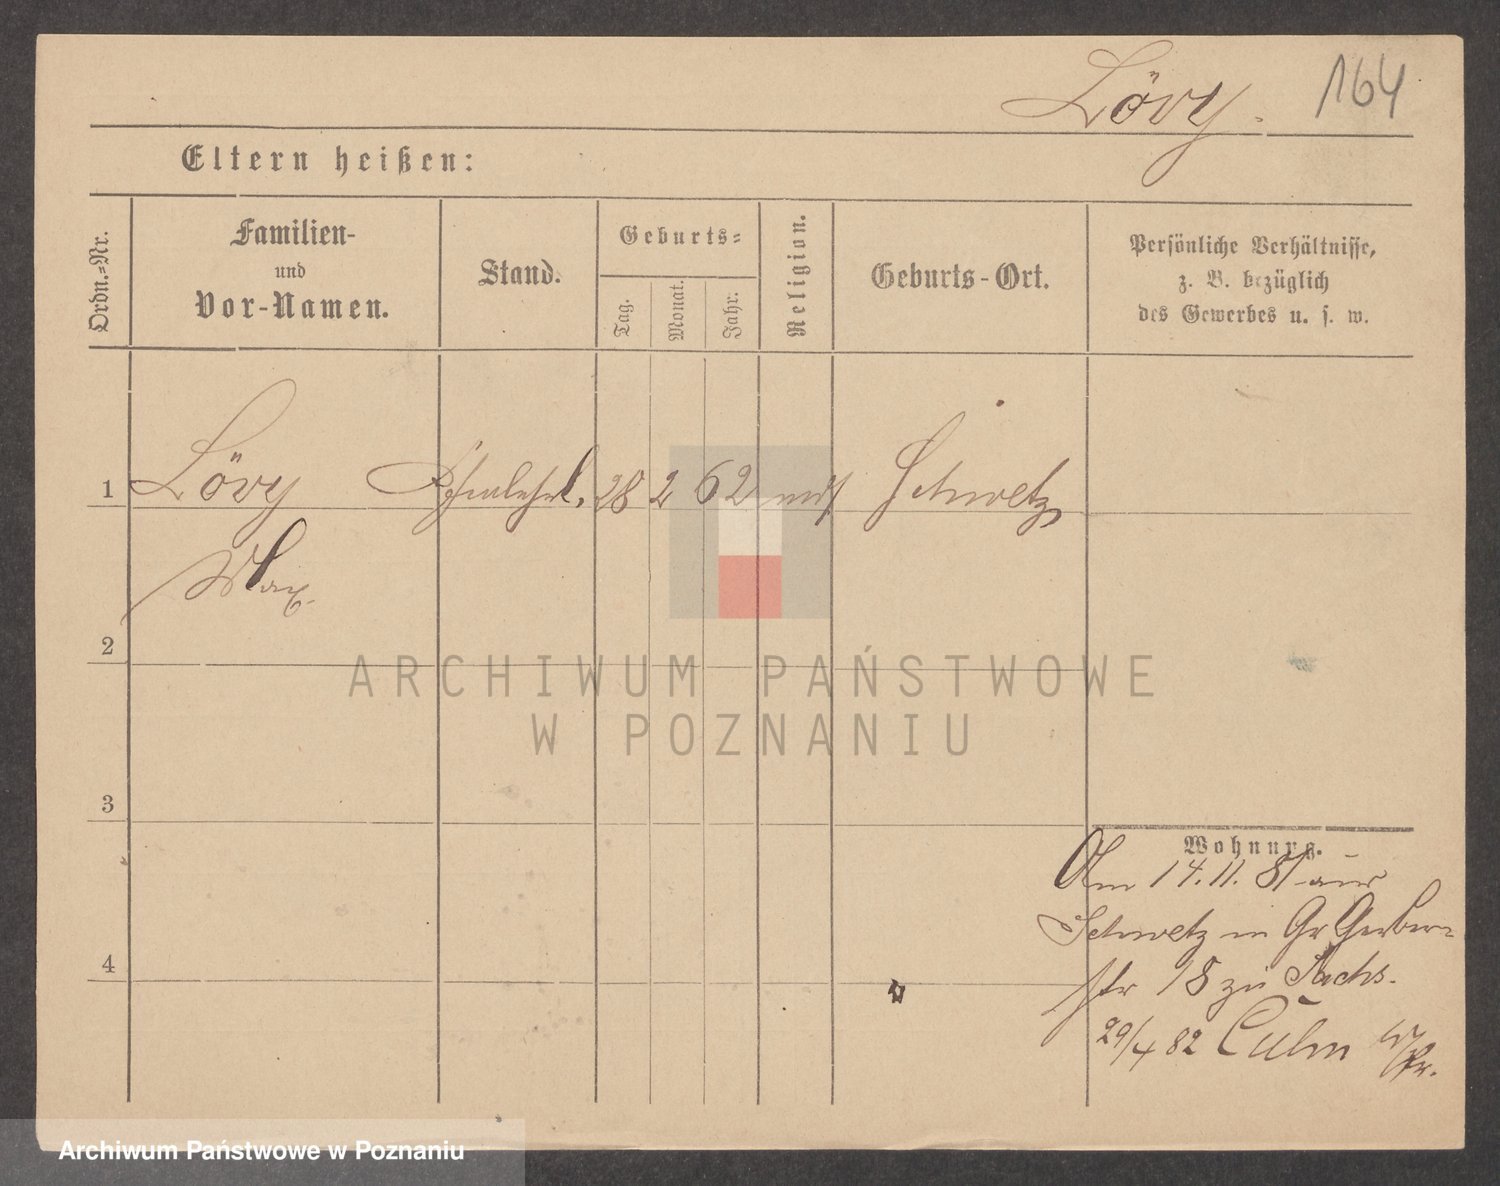 Lövy.
164
Eltern heißen:
Ordn.-Nr.
Familien-
und
Vor-Namen.
Stand.
Geburts-
Tag.
Monat.
Jahr.
Religion.
Geburts-Ort.
Persönliche Verhältnisse,
z. B. bezüglich
des Gewerbes u. s. w.
1 Lövy 28 2 62 mos Schwetz
Max.
2
ARCHIWUM PAŃSTWOWE
W POZNANIU
3
Wohnung.
Am 14.11. 81 aus
Schwetz in Gr Gerber-
4
str 18 zu Sachs.
29/4 82 Culm W/Pr.
Archiwum Państwowe w Poznaniu